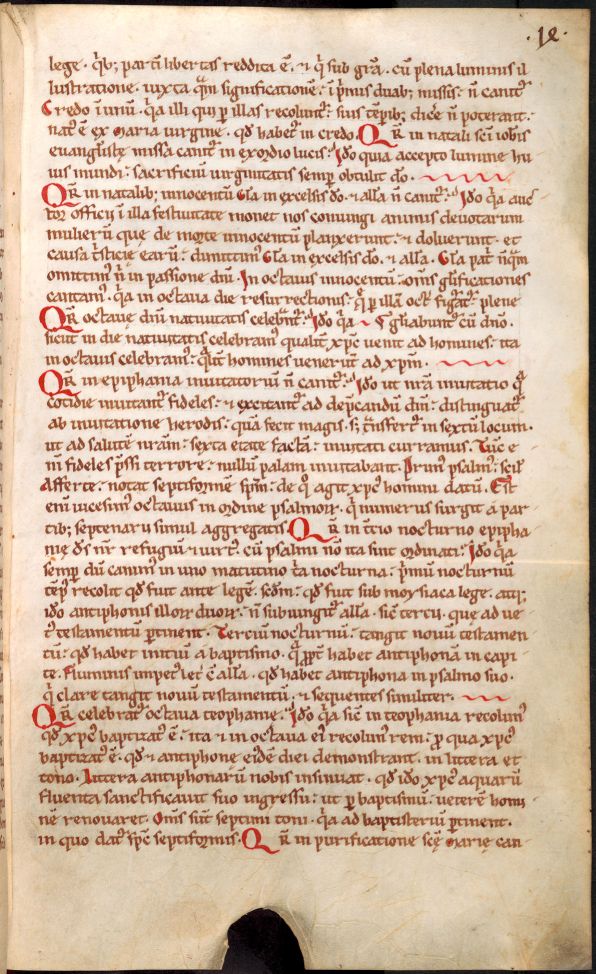 ·12·
lege · q̄b; partū libertas reddita ē · ⁊ q̄ sub gr̄a · cū plena luminis il
lustratione · iuxta q̄m significationē · ī p̄mis duab; missis · n̄ canit̄
Credo ī unū · q̄a illi qui p̄ illas recolunt̄ · suis tēpib; dicē n̄ poterant ·
nat᷒ ē ex maria uirgine · qđ habet̄ in credo · Qr̄ in natali scī ioħis
euanglistę missa canit̄ in exordio lucis · Ido quia accepto lumine hu
ius mundi · sacrificiū uirginitatis semp̄ obtulit do ·
Qr̄ in natalib; innocentū Gl̄a in excelsis do · ⁊ all̄a n̄ canit̄ · Ido q̄a auc
tor officii ī illa festiuitate monet nos coniungi animis deuotarum
mulierū quę de morte innocentū planxerunt · ⁊ doluerunt · et
causa tsticię earū · dimittim᷒ Gl̄a in excelsis do · ⁊ all̄a · Gl̄a pat̄ n̄q̄m
omittim᷒ n̄ in passione dn̄i · In octauis innocentū · om̄s gl̄ificationes
cantam᷒ · q̄a in octaua die resurrectionis · q̄ p̄ illā oct̄ figāt̄ · plene
Qr̄ octauę dn̄i natiuitatis celebrēt̄ · Ido q̄a gl̄habunt̄ cū dn̄o ·
sicut in die natiuitatis celebram᷒ qualit̄ xp̄c uenit ad homines · ita
in octauis celebram᷒ · q̄lit̄ homines uenerunt ad xp̄m ·
Qr̄ in epiphania inuitatoriū n̄ canit̄ · Ido ut nr̄a inuitatio q̄
cotidie inuitant̄ fideles · ⁊ excitant̄ ad dep̄candū dn̄m · distinguat̄
ab inuitatione herodis · quā fecit magis · s; t̄nsfert̄ in sextū locum ·
ut ad salutē nr̄am · sexta etate factā · inuitati curramus · Tūc e
nī fideles p̄ssi terrore · nullū palam inuitabant · Prim᷒ psalm᷒ · scil̄
Afferte · notat septiformē sp̄m · de q̊ agit xp̄c homini datū · Est
enī uicesim᷒ octauus in ordine psalmoꝝ · q̄ numerus surgit a par
tib; septenarii simul aggregatis · Qr̄ in tc̄io nocturno epipha
nię Ds nr̄ refugiū ⁊ uirt᷒ · cū psalmi nō ita sint ordinati · Ido q̄a
semp̄ dū canim᷒ in uno matutino t̄a nocturna · p̄mū nocturnū
tēp᷒ recolit qđ fuit ante legē · scd̄m · qđ fuit sub moysiaca lege · atq̄;
ido antiphonis illoꝝ duoꝝ · n̄ subiungit᷒ all̄a · sic̄ tercii · que ad ue
t᷒ testamentū p̄tinent · Terciū nocturnū · tangit nouū testamen
tū · qđ habet initiū a baptismo · q̄ p̄pt̄ habet antiphonā in capi
te · Fluminis impet᷒ let̄ ē all̄a · qđ habet antiphona in psalmo suo ·
q̄ clare tangit nouū testamentū · ⁊ sequentes similiter ·
Qr̄ celebrat̄ octaua teophanię · Ido q̄a sic̄ in teophania recolim᷒
qđ xp̄c baptizat᷒ ē · ita ⁊ in octaua ei᷒ recolim᷒ rem · p̄ qua xp̄c
baptizat᷒ ē · qđ ⁊ antiphonę eidē diei demonstrant · in littera et
tono · Littera antiphonarū nobis insinuat · qđ ido xp̄c aquarū
fluenta sanctificauit suo ingressu · ut p̄ baptismū · ueterē homi
nē renouaret · Om̄is sūt septimi toni · q̄a ad baptisteriū p̄tinent ·
in quo dat᷒ sp̄c septiformis · Qr̄ in purificatione scę marię can